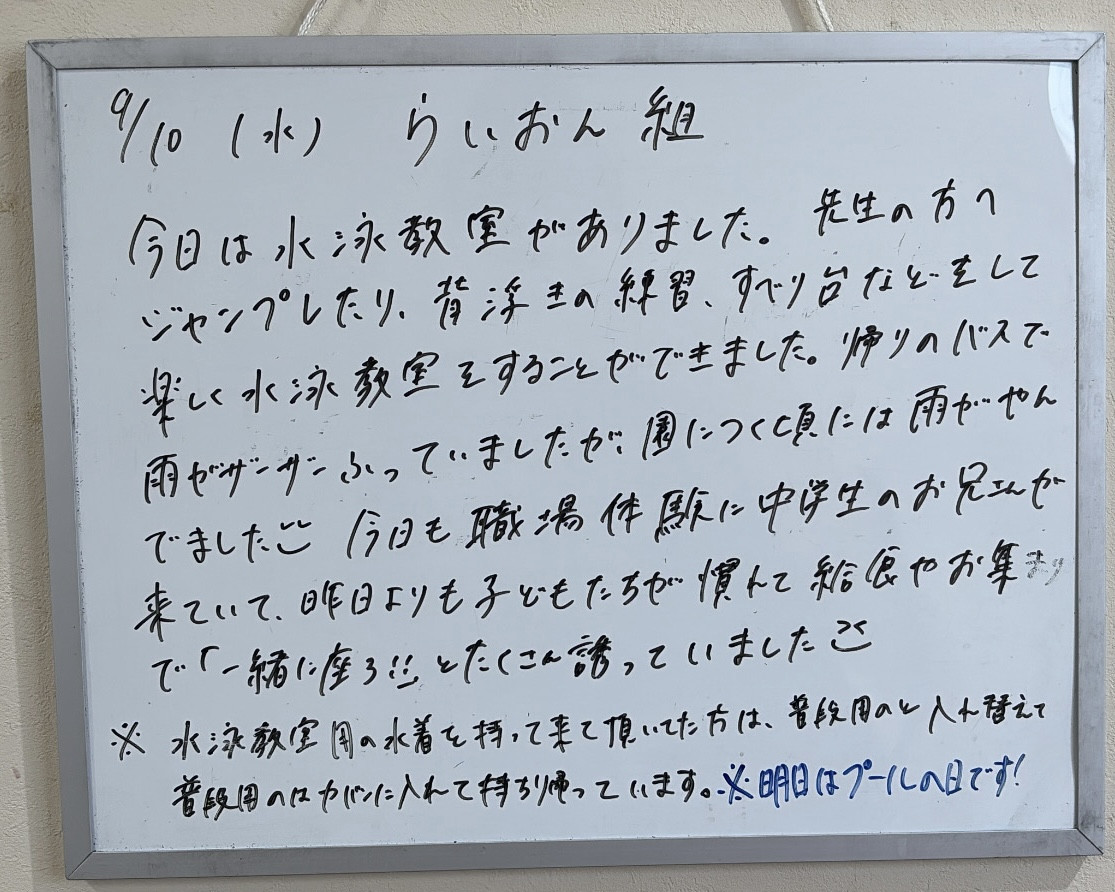 9/10 (水) らいおん組
今日は水泳教室がありました。先生の方へ
ジャンプしたり、背浮きの練習、すべり台などをして
楽しく水泳教室をすることができました。帰りのバスで
雨がザーザーふっていましたが、園につく頃には雨がやん
でました 今日も職場体験に中学生のお兄さんが
来ていて、昨日よりも子どもたちが慣れて給食やお集まり
で「一緒に座ろ!!」とたくさん誘っていました
※ 水泳教室用の水着を持って来て頂いてた方は、普段用のと入れ替えて
普段用のはカバンに入れて持ち帰っています。※明日はプールの日です!